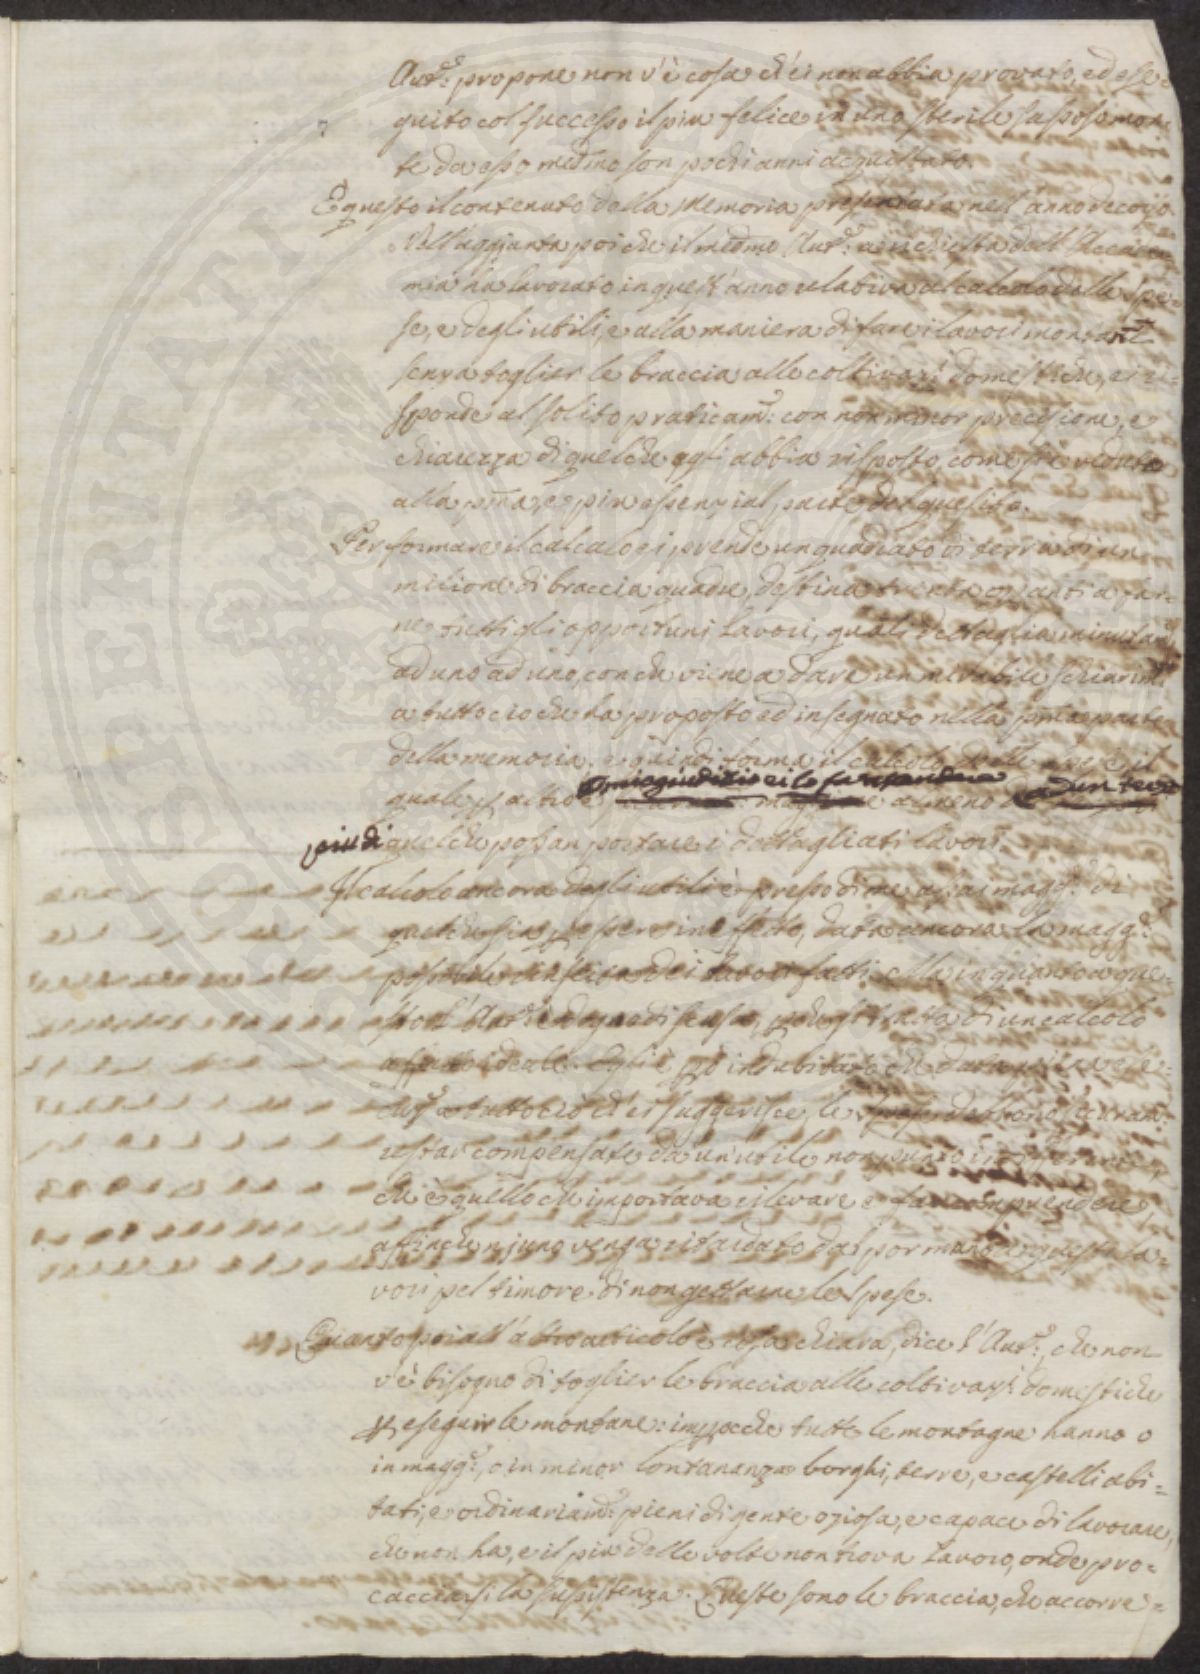 Aut.e propone non v'è cosa ch'ei non abbia provato, ed ese=
guito col successo il piu felice in uno sterile sassoso mon=
te da esso medmo son pochi anni acquistato.
E questo il contenuto della Memoria presentata nell'anno decorso.
Nell'aggiunta poi che il medmo Aut.e a richiesta dell'Accade=
mia ha lavorato in quest'anno relativa al calcolo delle spe=
se, e degli utili, e alla maniera di fare i lavori montani
senza toglier le braccia alle coltivazi domestiche, ei ri=
sponde al solito praticam.e con non minor precisione, e
chiarezza di quelche egli abbia risposto, come si è veduto
alla pma, e piu essenzial parte del quesito.
Per formare il calcolo ei prende un quadrato di terra di un
milione di braccia quadre, destina trenta opranti a far=
ne tutti gli opportuni lavori, quali dettaglia minutam.e
ad uno ad uno, con che viene a dare un mirabile schiarim.
a tutto ciò che ha proposto ed insegnato nella pma parte
della memoria, e quindi forma il calcolo delle spese, il
quale a mio giudizio ei lo fa ascendere ad un terzo
piu di quelche possan portare i dettagliati lavori.
Il calcolo ancora degli utili è presso di me assai magg.e di
quelche sia per essere in effetto, data ancora la magg.e
possibile riuscita dei lavori fatti. Ma in quanto a que=
sto l'Aut.e è degno di scusa, perche si tratta di un calcolo
affatto ideale. Egli è però indubitato che data
a tutto ciò ch'ei suggerisce, le spese debbono sicuram.
restar compensate da un'utile non punto
che è quello che importava rilevare e far comprendere,
affinche niuno venga ritardato da por mano a questi la=
vori pel timore di non gettarne le spese.
Quanto poi all'altro articolo è cosa chiara, dice l'Aut.e, che non
v'è bisogno di toglier le braccia alle coltivazi domestiche
p eseguir le montane: imperocche tutte le montagne hanno o
in magg.e, o in minor lontananza borghi, terre, e castelli abi=
tati, e ordinariam.e pieni di gente oziosa, e capace di lavorare,
che non ha, e il piu delle volte non trova lavoro, onde pro=
cacciarsi la sussistenza. Queste sono le braccia, che accorre=